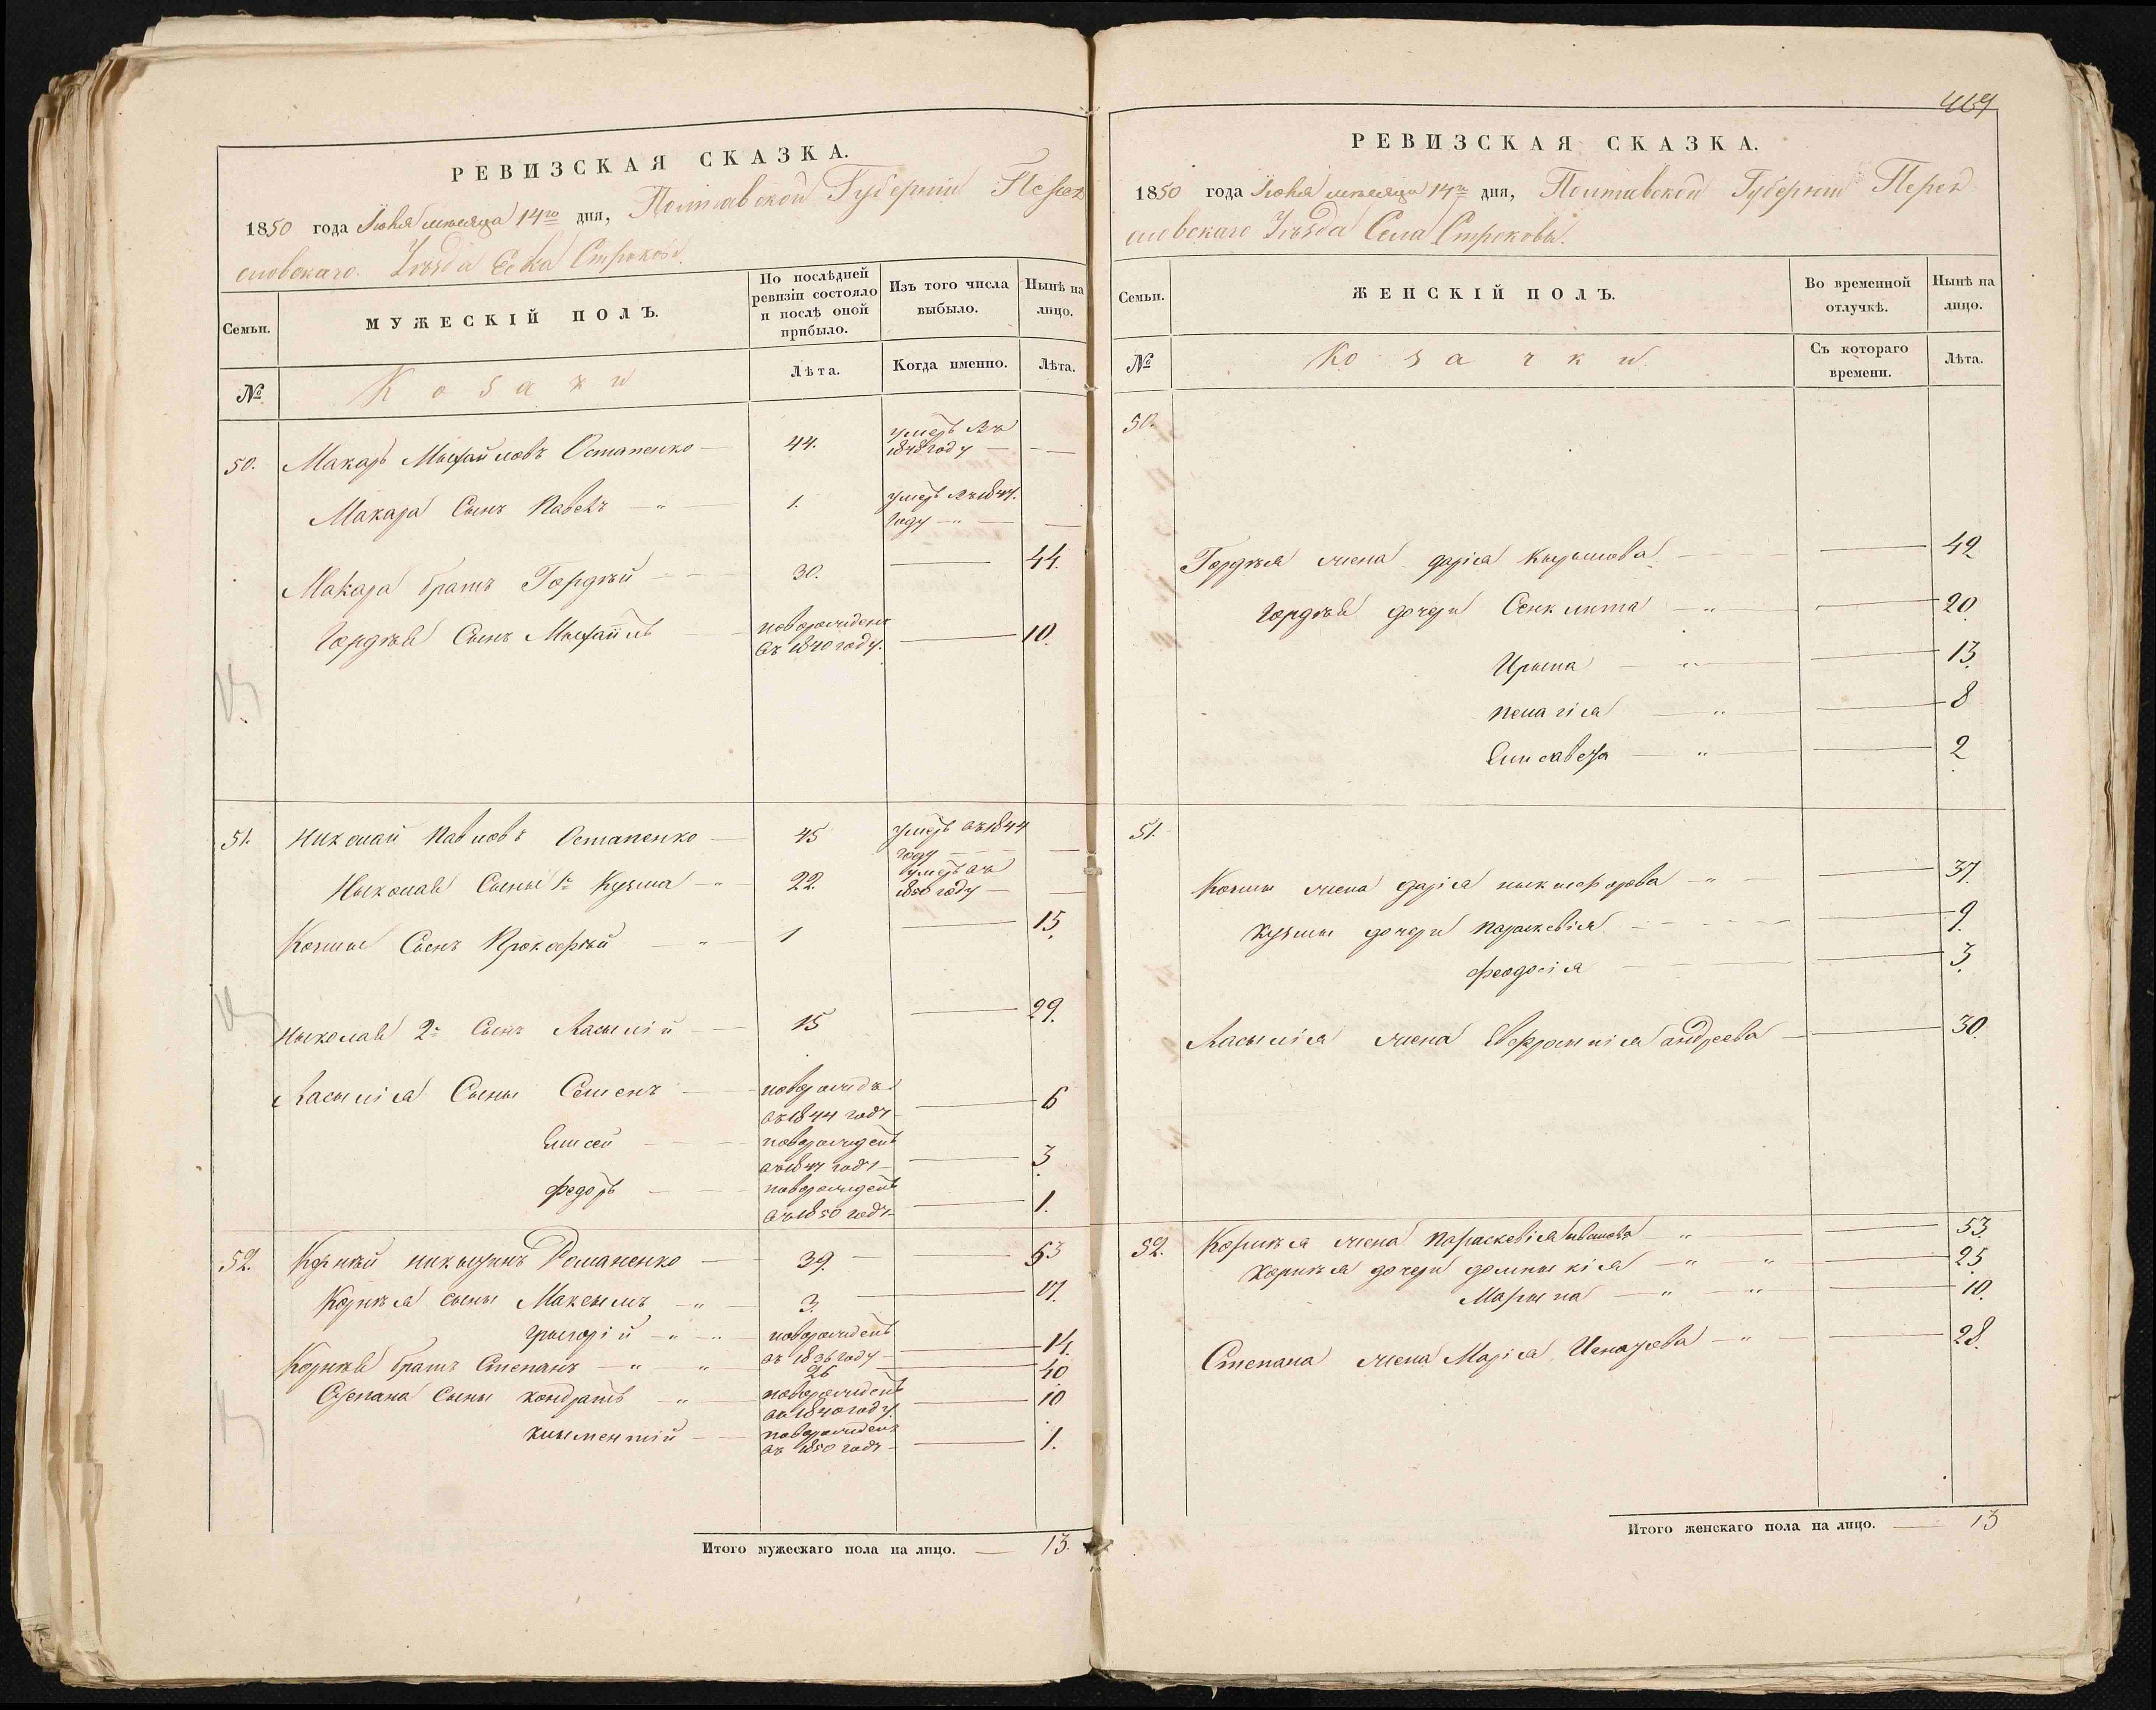 РЕВИЗСКАЯ СКАЗКА.
1850 года Июня месяца 14го дня, Полтавской Губернии Перея
славскаго Уѣзда Села Строковы.
Семьи.
МУЖЕСКІЙ ПОЛЪ.
По послѣдней ревизіи состояло и послѣ оной прибыло.
Изъ того числа выбыло.
Нынѣ на лицо.
№
Козаки
Лѣта.
Когда именно.
Лѣта.
50. Макаръ Мыхайловъ Остапенко — 44. умеръ въ 1848 году —
Макара Сынъ Павелъ — 1. умеръ въ 1844. году —
Макара братъ Гордѣй — 30. — 44.
Гордѣя Сынъ Мыхайлъ — новорожденъ въ 1840 году. — 10.
51. Николай Павловъ Остапенко — 45 умеръ въ 1844 году —
Ныколая Сыны 1й Кузьма — 22. умеръ въ 1850 году —
Козьмы Сынъ Прокофій — 1 — 15.
Ныколая 2й Сынъ Васылій — 15 — 29.
Васылія Сыны Семенъ — новорожд въ 1844 году — 6
Елисей — новорожденъ въ 1847 году — 3
Федоръ — новорожденъ въ 1850 году — 1.
52. Корнѣй Романенко — 39. — 53
Корнѣя сыны Максымъ — 3. — 17.
Грыгорій — новорожденъ въ 1836 году — 14.
Корнѣя братъ Степанъ — 26 — 40
Степана Сыны Кондратъ — новорожденъ въ 1840 году. — 10
Клыментій — новорожденъ въ 1850 году — 1.
Итого мужескаго пола на лицо. — 13.
469
РЕВИЗСКАЯ СКАЗКА.
1850 года Июня месяца 14го дня, Полтавской Губернии Перея
славскаго Уѣзда Села Строковы.
Семьи.
ЖЕНСКІЙ ПОЛЪ.
Во временной отлучкѣ.
Нынѣ на лицо.
№
Козачки
Съ котораго времени.
Лѣта.
50.
Гордѣя жена Дарія Кырылова — 42
Гордѣя дочери — 20.
Ирына — 13.
Пелагія — 8
Елисавета — 2
51.
Козьмы жена Дарія Ныкифорова — 37.
Кузьмы дочери Параскевія — 9.
Феодосія — 3.
Васылія жена Андреева — 30.
52. Корнѣя жена Параскевія Иванова — 53.
Корнѣя дочери Домныкія — 25
Марына — 10.
Степана жена Марія — 28.
Итого женскаго пола на лицо. — 13